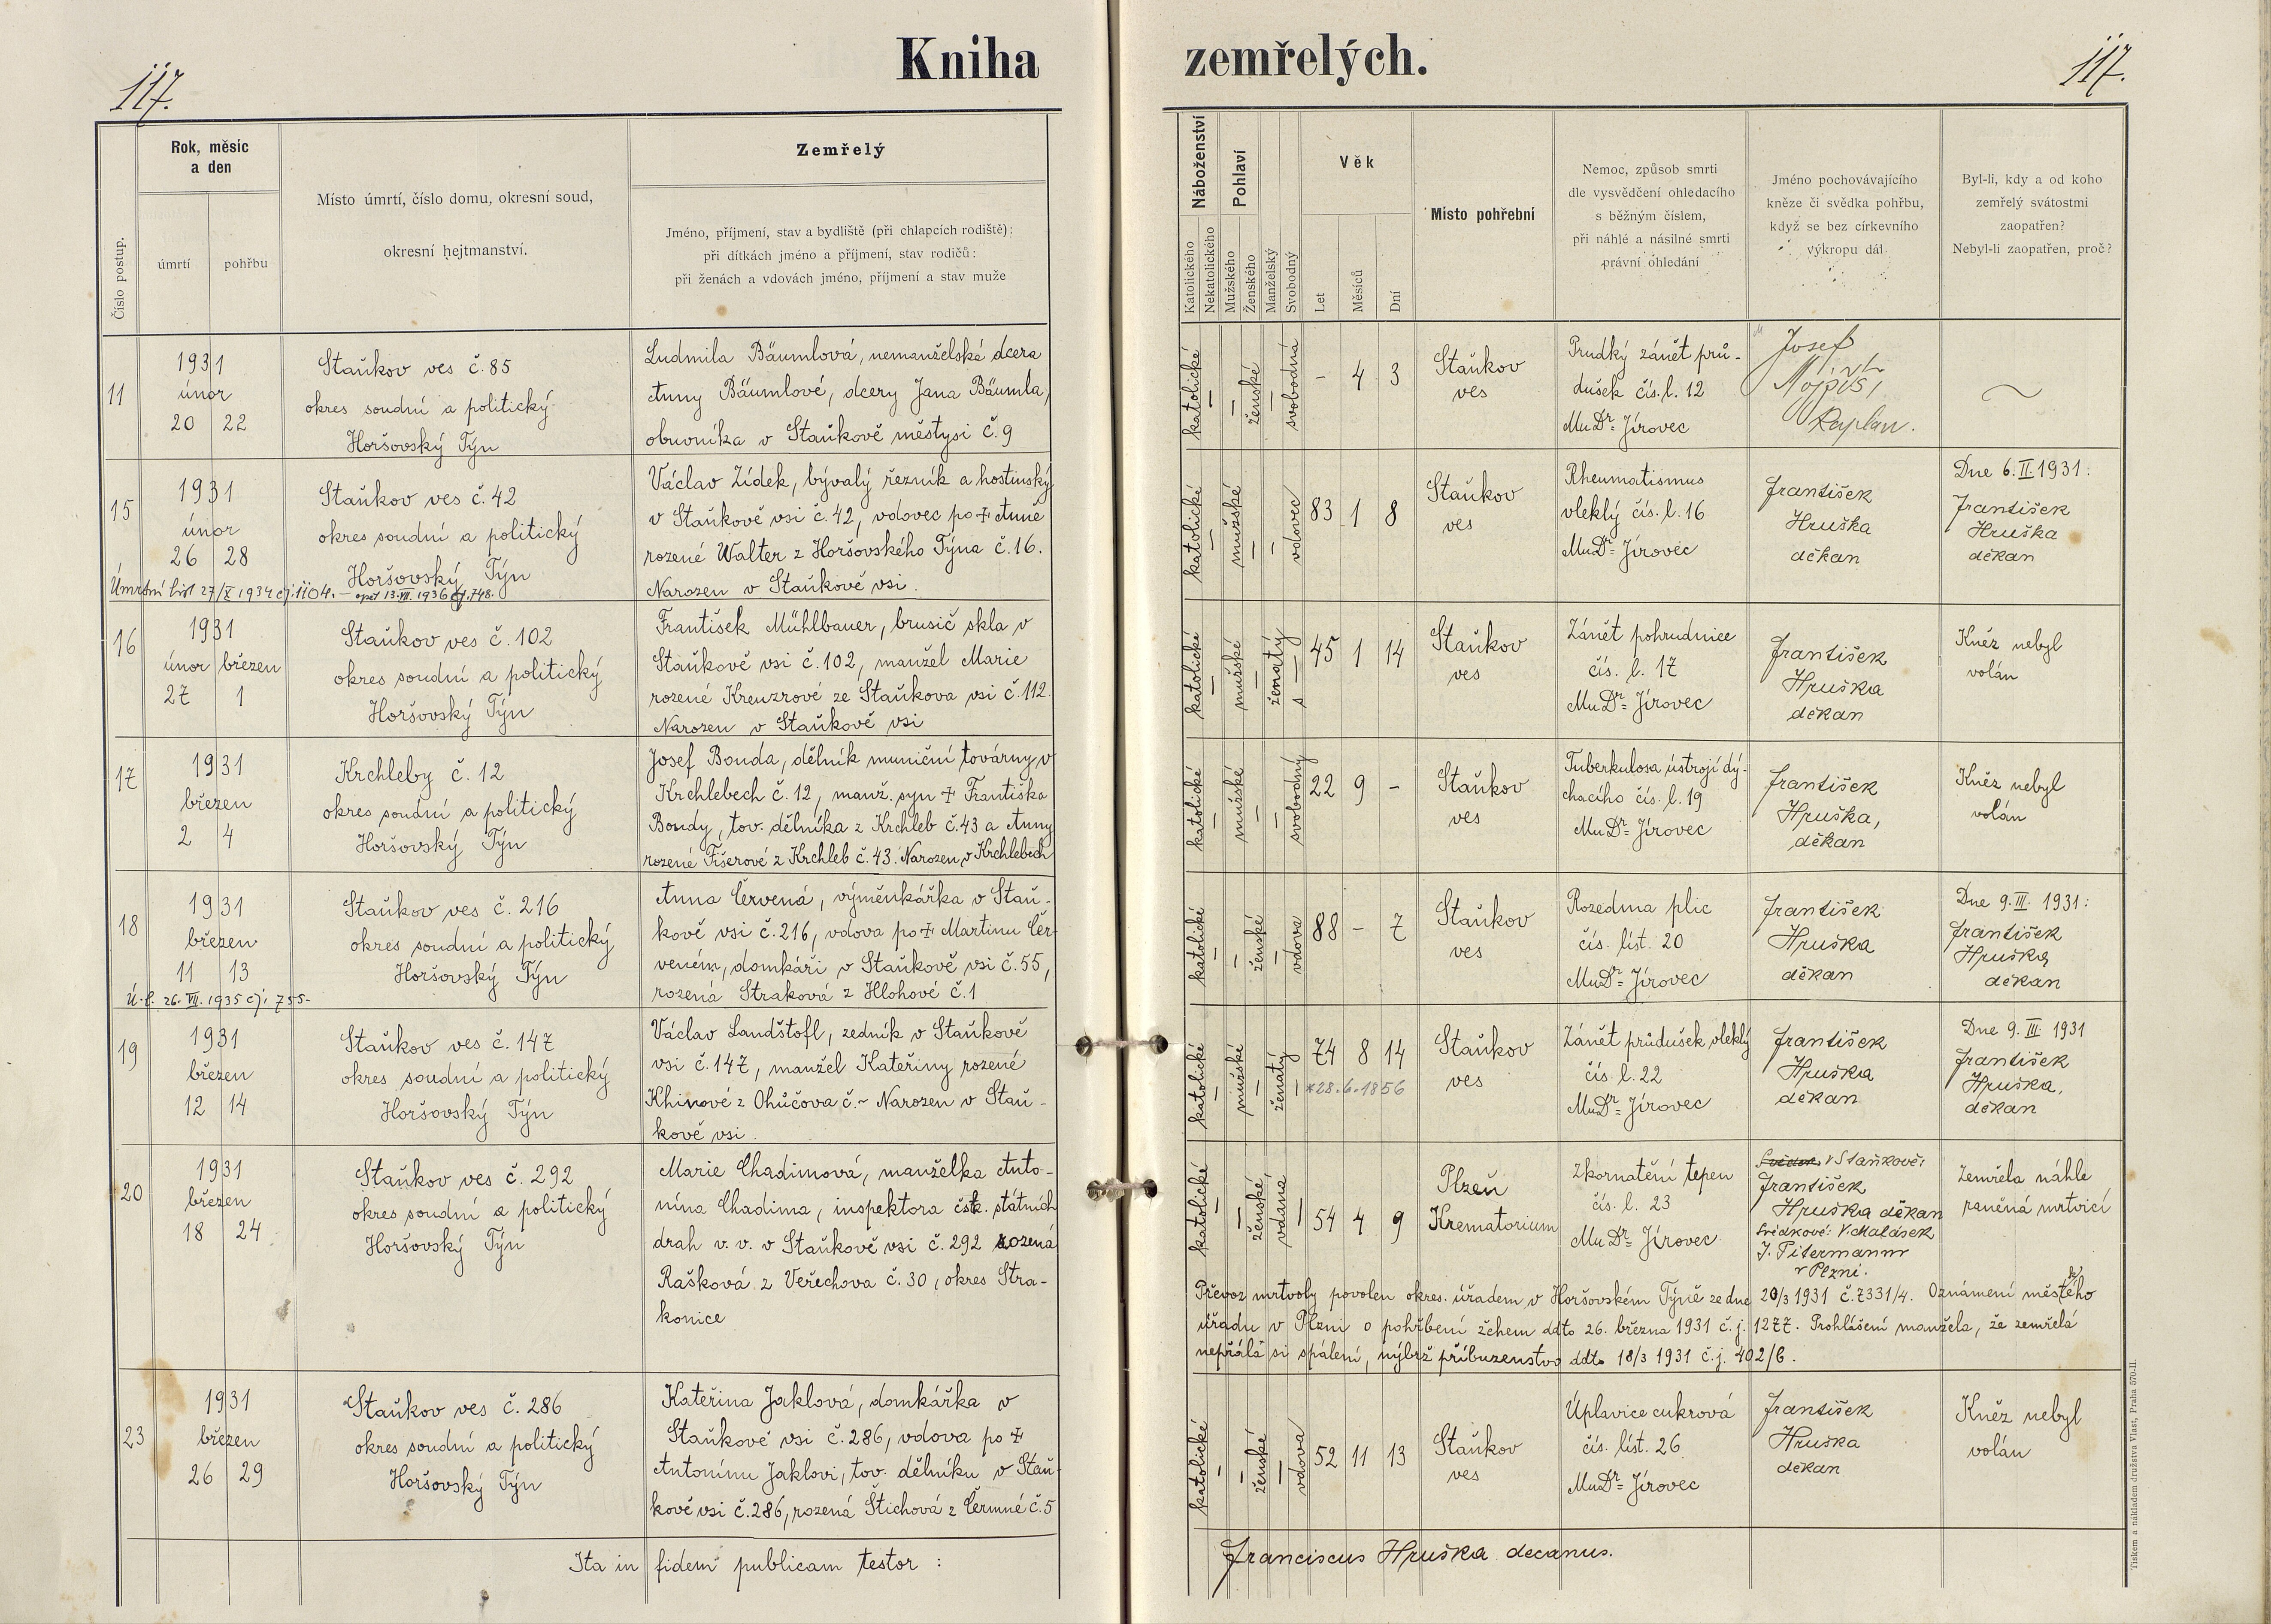 117.
Kniha
zemřelých.
117.
Číslo postup.
Rok, měsíc
a den
úmrtí
pohřbu
Místo úmrtí, číslo domu, okresní soud,
okresní hejtmanství.
Zemřelý
Jméno, příjmení, stav a bydliště (při chlapcích rodiště):
při dítkách jméno a příjmení, stav rodičů:
při ženách a vdovách jméno, příjmení a stav muže
Náboženství
Katolického
Nekatolického
Pohlaví
Mužského
Ženského
Manželský
Svobodný
Věk
Let
Měsíců
Dní
Místo pohřební
Nemoc, způsob smrti
dle vysvědčení ohledacího
s běžným číslem,
při náhlé a násilné smrti
právní ohledání
Jméno pochovávajícího
kněze či svědka pohřbu,
když se bez církevního
výkropu dál
Byl-li, kdy a od koho
zemřelý svátostmi
zaopatřen?
Nebyl-li zaopatřen, proč?
11
1931
únor
20 22
Staňkov ves č. 85
okres soudní a politický
Horšovský Týn
Ludmila Bäumlová, nemanželská dcera
Anny Bäumlové, dcery Jana Bäumla,
obuvníka v Staňkově městysi č. 9
katolické
—
—
ženské
—
svobodná
- 4 3
Staňkov
ves
Prudký zánět prů-
dušek čís. l. 12
MuDr. Jírovec
Josef
Kaplan.
~
15
1931
únor
26 28
Úmrtní list 27/X 1934 čj. 1104. — opět 13.VII. 1936 čj. 748.
Staňkov ves č. 42
okres soudní a politický
Horšovský Týn
Václav Zídek, bývalý řezník a hostinský
v Staňkově vsi č. 42, vdovec po ‡ Anně
rozené Walter z Horšovského Týna č. 16.
Narozen v Staňkově vsi.
katolické
—
mužské
—
—
vdovec
83 1 8
Staňkov
ves
Rheumatismus
vleklý čís. l. 16
MuDr. Jírovec
František
Hruška
děkan
Dne 6.II.1931:
František
Hruška
děkan
16
1931
únor březen
27 1
Staňkov ves č. 102
okres soudní a politický
Horšovský Týn
František Mühlbauer, brusič skla v
Staňkově vsi č. 102, manžel Marie
rozené Kreuzrové ze Staňkova vsi č. 112.
Narozen v Staňkově vsi
katolické
—
mužské
—
ženatý
s —
45 1 14
Staňkov
ves
Zánět pohrudnice
čís. l. 17
MuDr. Jírovec
František
Hruška
děkan
Kněz nebyl
volán
17
1931
březen
2 4
Krchleby č. 12
okres soudní a politický
Horšovský Týn
Josef Bouda, dělník muniční továrny v
Krchlebech č. 12, manž. syn ‡ Františka
Boudy, tov. dělníka z Krchleb č. 43 a Anny
rozené Fišerové z Krchleb č. 43. Narozen v Krchlebech
katolické
—
mužské
—
—
svobodný
22 9 -
Staňkov
ves
Tuberkulosa ústrojí dý-
chacího čís. l. 19
MuDr. Jírovec
František
Hruška,
děkan
Kněz nebyl
volán
18
1931
březen
11 13
Ú. l. 26. VII. 1935 čj. 755-
Staňkov ves č. 216
okres soudní a politický
Horšovský Týn
Anna Červená, výměnkářka v Staň-
kově vsi č. 216, vdova po ‡ Martinu Čer-
veném, domkáři v Staňkově vsi č. 55,
rozená Straková z Hlohové č. 1
katolické
—
—
ženské
—
vdova
88 - 7
Staňkov
ves
Rozedma plic
čís. líst. 20
MuDr. Jírovec
František
Hruška
děkan
Dne 9.III. 1931:
František
Hruška
děkan
19
1931
březen
12 14
Staňkov ves č. 147
okres soudní a politický
Horšovský Týn
Václav Landštofl, zedník v Staňkově
vsi č. 147, manžel Kateřiny rozené
Khinové z Ohůčova č. ~ Narozen v Staň-
kově vsi.
katolické
—
mužské
—
ženatý
—
74 8 14
*28.6.1856
Staňkov
ves
Zánět průdušek vleklý
čís. l. 22
MuDr. Jírovec
František
Hruška
děkan
Dne 9. III. 1931
František
Hruška,
děkan
20
1931
březen
18 24
Staňkov ves č. 292
okres soudní a politický
Horšovský Týn
Marie Chadimová, manželka Anto-
nína Chadima, inspektora čsk. státních
drah v. v. v Staňkově vsi č. 292 rozená
Rašková z Veřechova č. 30, okres Stra-
konice
katolické
—
—
ženské
vdaná
—
54 4 9
Plzeň
Krematorium
Zkornatění tepen
čís. l. 23
MuDr. Jírovec
V Staňkově:
František
Hruška děkan
Svědkové: V. Malásek
J. Pitermann
v Plzni.
Zemřela náhle
raněná mrtvicí
Převoz mrtvoly povolen okres. úřadem v Horšovském Týně ze dne 20/3 1931 č. 7331/4. Oznámení městského
úřadu v Plzni o pohřbení žehem ddto 26. března 1931 č. j. 1277. Prohlášení manžela, že zemřelá
nepřála si spálení, nýbrž příbuzenstvo ddto 18/3 1931 č. j. 402/6.
23
1931
březen
26 29
Staňkov ves č. 286
okres soudní a politický
Horšovský Týn
Kateřina Jaklová, domkářka v
Staňkově vsi č. 286, vdova po ‡
Antonínu Jaklovi, tov. dělníku v Staň-
kově vsi č. 286, rozená Štichová z Čermné č. 5
katolické
—
—
ženské
—
vdova
52 11 13
Staňkov
ves
Úplavice cukrová
čís. líst. 26
MuDr. Jírovec
František
Hruška
děkan
Kněz nebyl
volán
Ita in fidem publicam testor :
Franciscus Hruška decanus.
Tiskem a nákladem družstva Vlast, Praha 570-II.